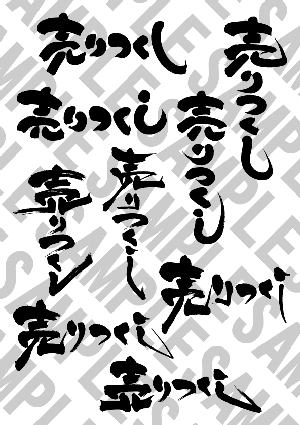 売りつくし
売りつくし
売りつくし
売りつくし
売りつくし
売りつくし
売りつくし
売りつくし
売りつくし
SAMPLE SAMPLE SAMPLE